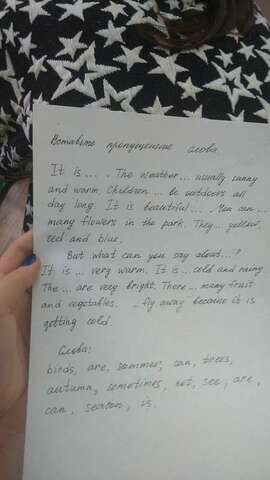 Вставьте пропущенные слова.
It is ... . The weather ... usually sunny
and warm. Children ... be outdoors all
day long. It is beautiful ... . You can ...
many flowers in the park. They ... yellow,
red and blue.
But what can you say about ...?
It is ... very warm. It is ... cold and rainy.
The ... are very bright. There ... many fruit
and vegetables. ... fly away because it is
getting cold.
Слова:
birds, are, summer, can, trees,
autumn, sometimes, not, see, are,
can, season, is.